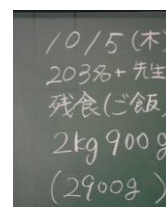 10/5(木)
203名+先生
残食(ご飯)
2kg900g
(2900g)